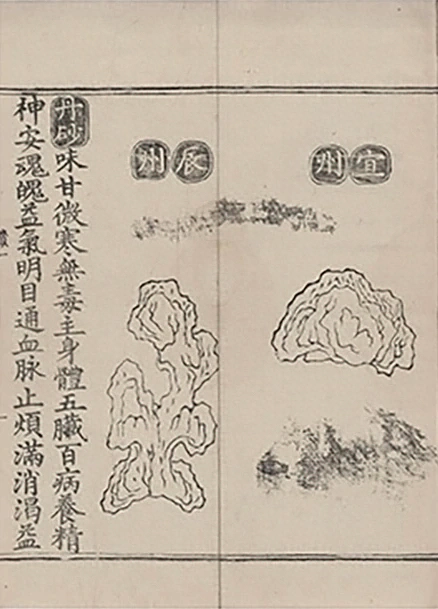 宜州
辰州
丹砂味甘微寒無毒主身體五臟百病養精
神安魂魄益氣明目通血脉止煩滿消渴益